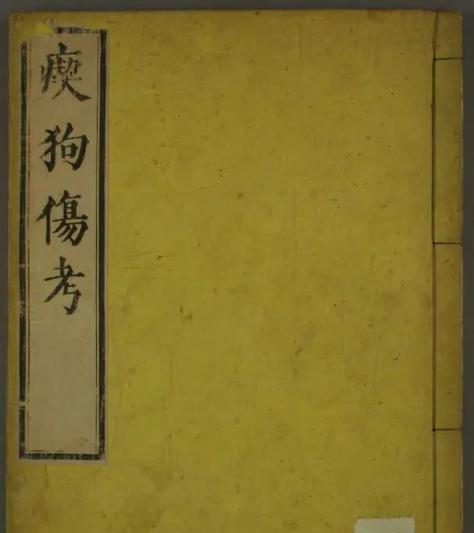 瘈狗傷考